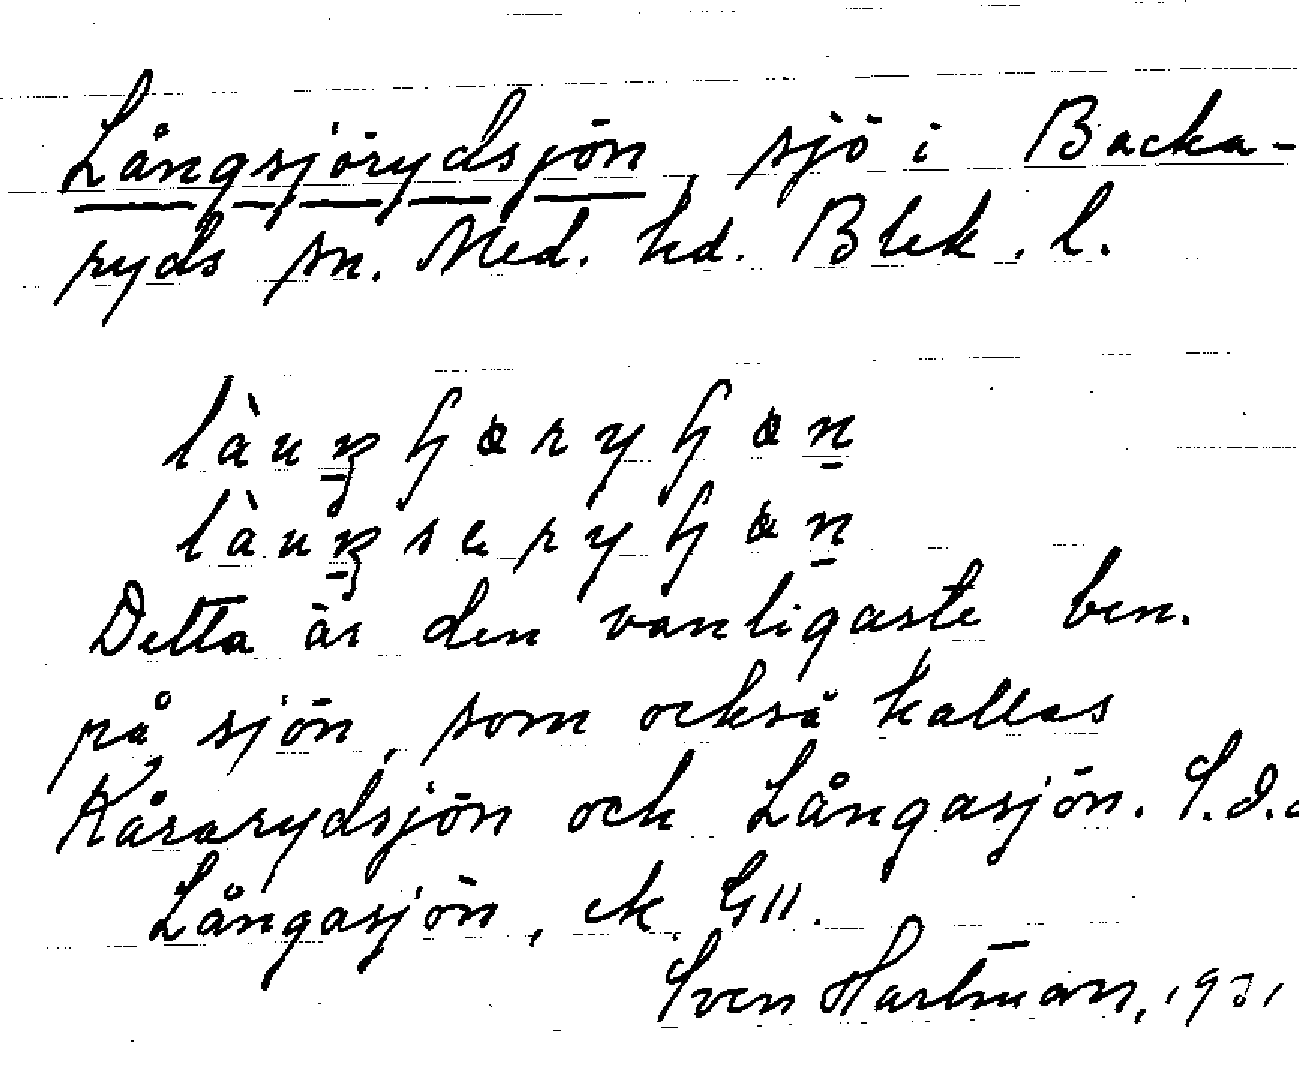 Långsjörydsjön, sjö i Backa-
ryds sn. Med. hd. Blek. l.
Detta är den vanligaste ben.
på sjön, som också kallas
Kårarydsjön och Långasjön. S.d.o
Långasjön, ek. G11.
Sven Hartman, 1931